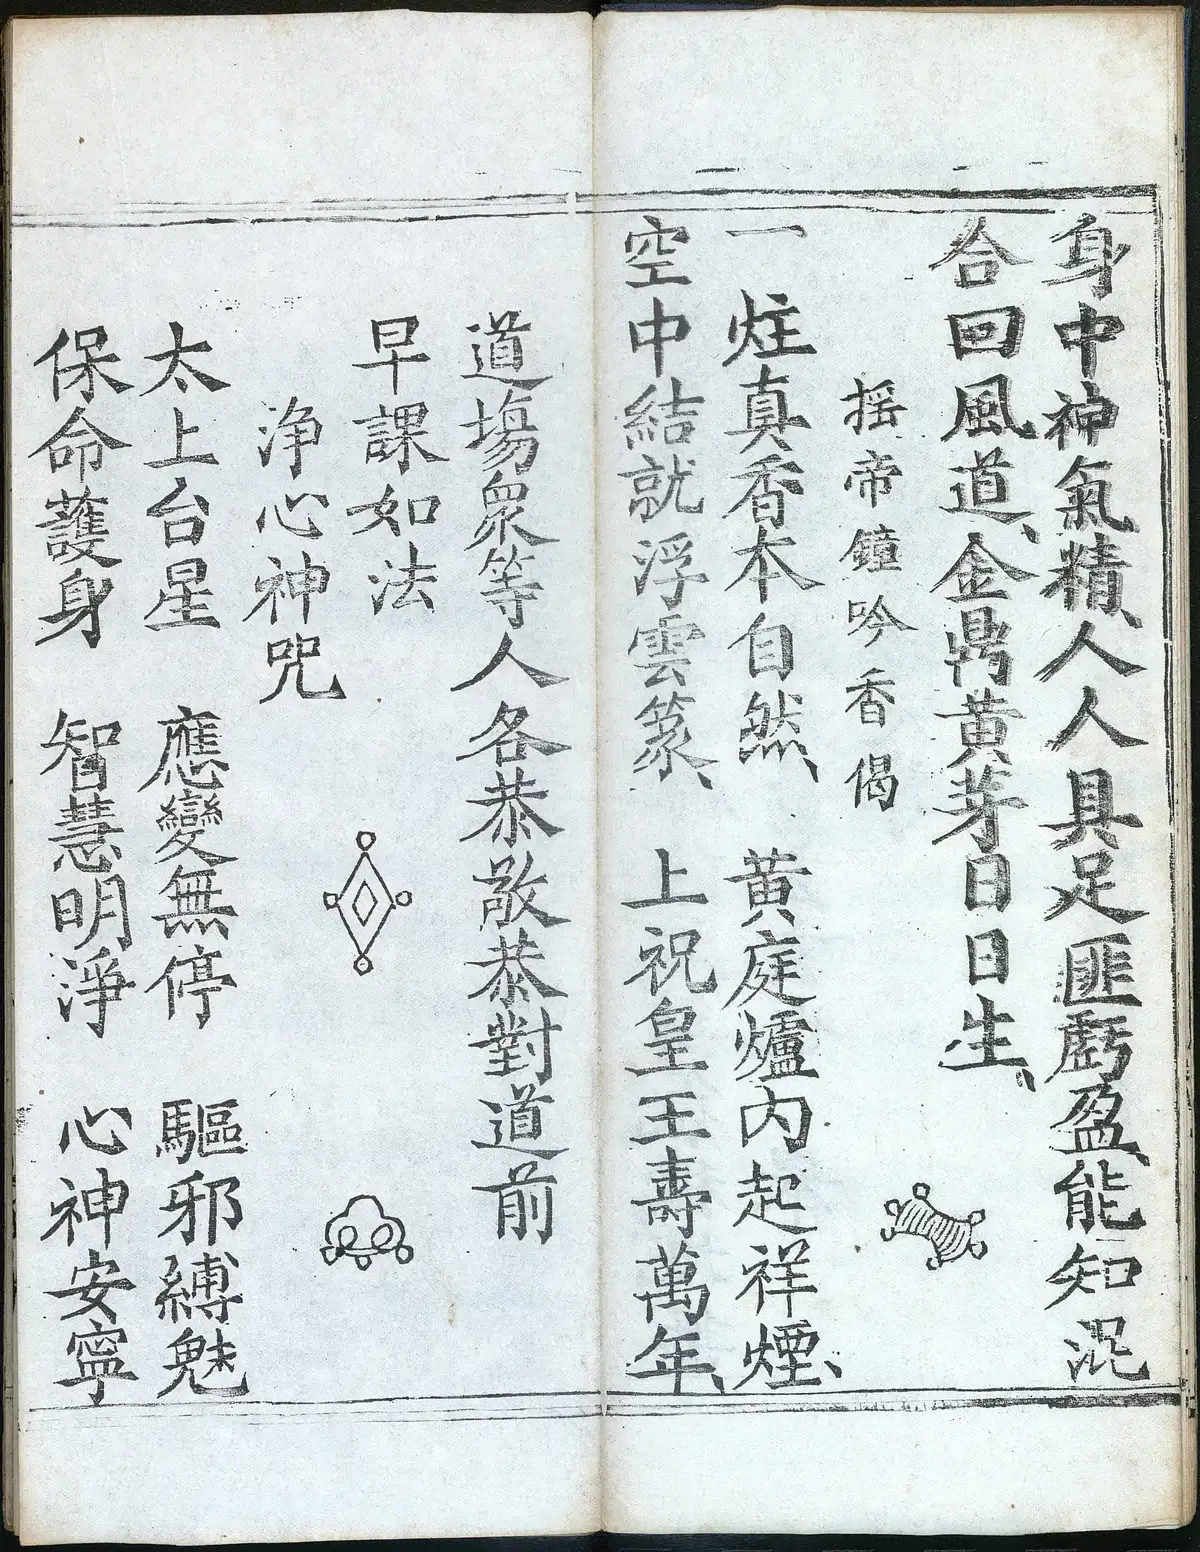 身中神氣精、人人具足匪虧盈、能知混
合回風道、金鼎黄芽日日生、
摇帝鐘吟香偈
一炷真香本自然、黄庭爐内起祥煙、
空中結就浮雲篆、上祝皇王壽萬年、
道塲衆等人各恭敬恭對道前
早課如法
浄心神咒
太上台星 應變無停 驅邪縛魅
保命護身 智慧明淨 心神安寧